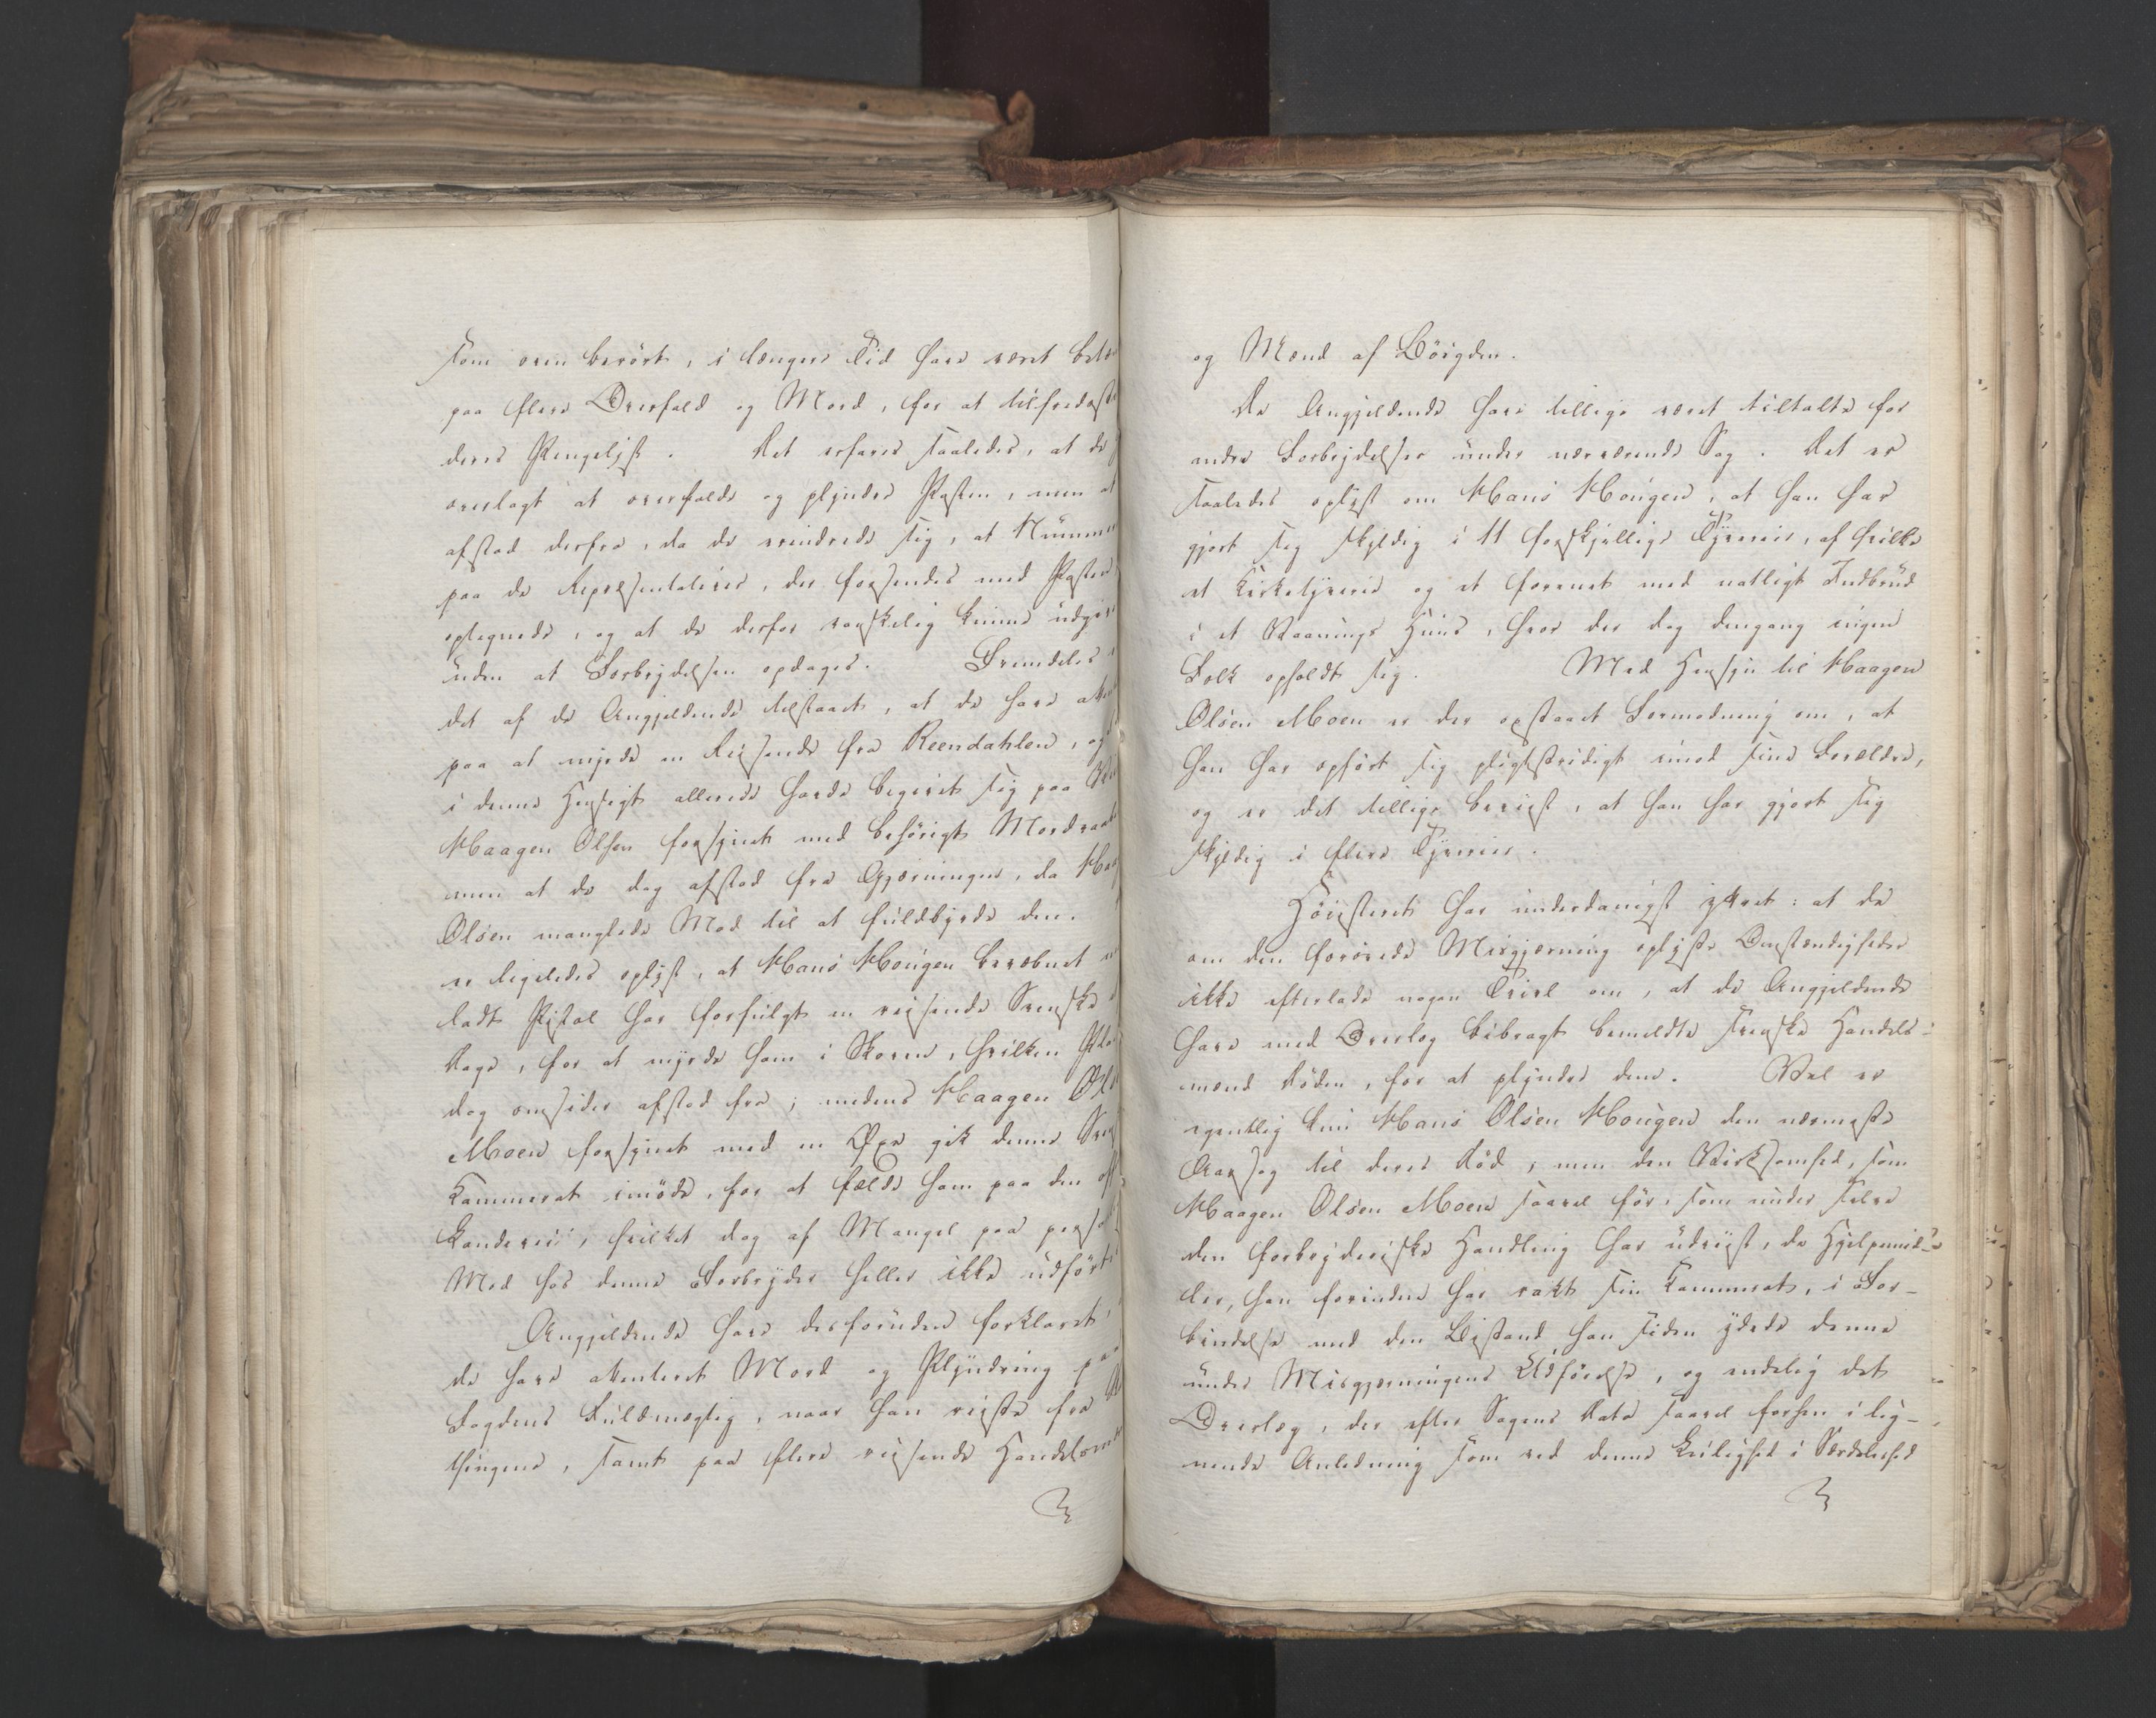 som oven berørt, i længere Tid have været
paa flere Overfald og Mord, for at
deres Pengelyst. Det erfares saaledes, at de
overlagt at overfalde og plyndre Posten, men at
afstod derfra, da de erindrede sig, at
paa de Repræsentativer, der forsendes med Posten
optegnede, og at de derfor vanskelig kunne
uden at Forbrydelsen opdages. Fremdeles
det af de Angjeldende tilstaaet, at de have
paa at myrde en Reisende fra Reendahlen, og
i denne Hensigt allerede havde begivet sig paa
Haagen Olsen forsynet med behørigt
men at de dog afstod fra Gjerningen, da
Olsen manglede Mod til at fuldbyrde den.
er ligeledes oplyst, at Hans Hougen bevæbnet
ladt Pistol har forfulgt en reisende Svenske
Dage, for at myrde ham i Skoven, hvilken
dog omsider afstod fra; medens Haagen
Moen forsynet med en Øxe gik denne
Kammerat imøde, for at fælde ham paa den
Landevei, hvilket dog af Mangel paa
Mod hos denne Forbryder heller ikke udførtes
Angjeldende have desforuden forklaret,
de have attenteret Mord og Plyndring paa
Fogdens Fuldmægtig, naar han reiste fra
thingene, samt paa flere reisende
og Mænd af Bøigden.
De Angjeldende have tillige været tiltalte for
andre Forbrydelser under nærværende Sag. Det er
saaledes oplyst om Hans Hougen, at han har
gjort sig skyldig i 11 forskjellige Tyverier, af hvilke
et Kirketyverie og et forenet med natligt Indbrud
i et Vaanings Huus, hvor der dog dengang ingen
Folk opholdt sig. Med Hensyn til Haagen
Olsen Moen er der opstaaet Formodning om, at
han har opført sig pligtstridigt imod sine Forældre,
og er det tillige beviist, at han har gjort sig
skyldig i flere Tyverier.
Høiesteret har underdanigst yttret: at de
om den forøvede Misgjerning oplyste Omstændigheder
ikke efterlade nogen Tvivl om, at de Angjeldende
have med Overlæg bibragt bemeldte svenske Handels-
mænd Døden, for at plyndre dem. Vel er
egentlig kun Hans Olsen Hougen den nærmeste
Aarsag til deres Død; men den Virksomhed, som
Haagen Olsen Moen saavel før, som under selve
den forbryderiske Handling har udviist, de Hjelpemid-
ler, han forinden har rakt sin Kammerat, i For-
bindelse med den Bistand han siden ydede denne
under Misgjerningens Udførelse, og endelig det
Overlæg, der efter Sagens Data saavel forhen i lig-
nende Anledning som ved denne Leilighed i Særdeleshed